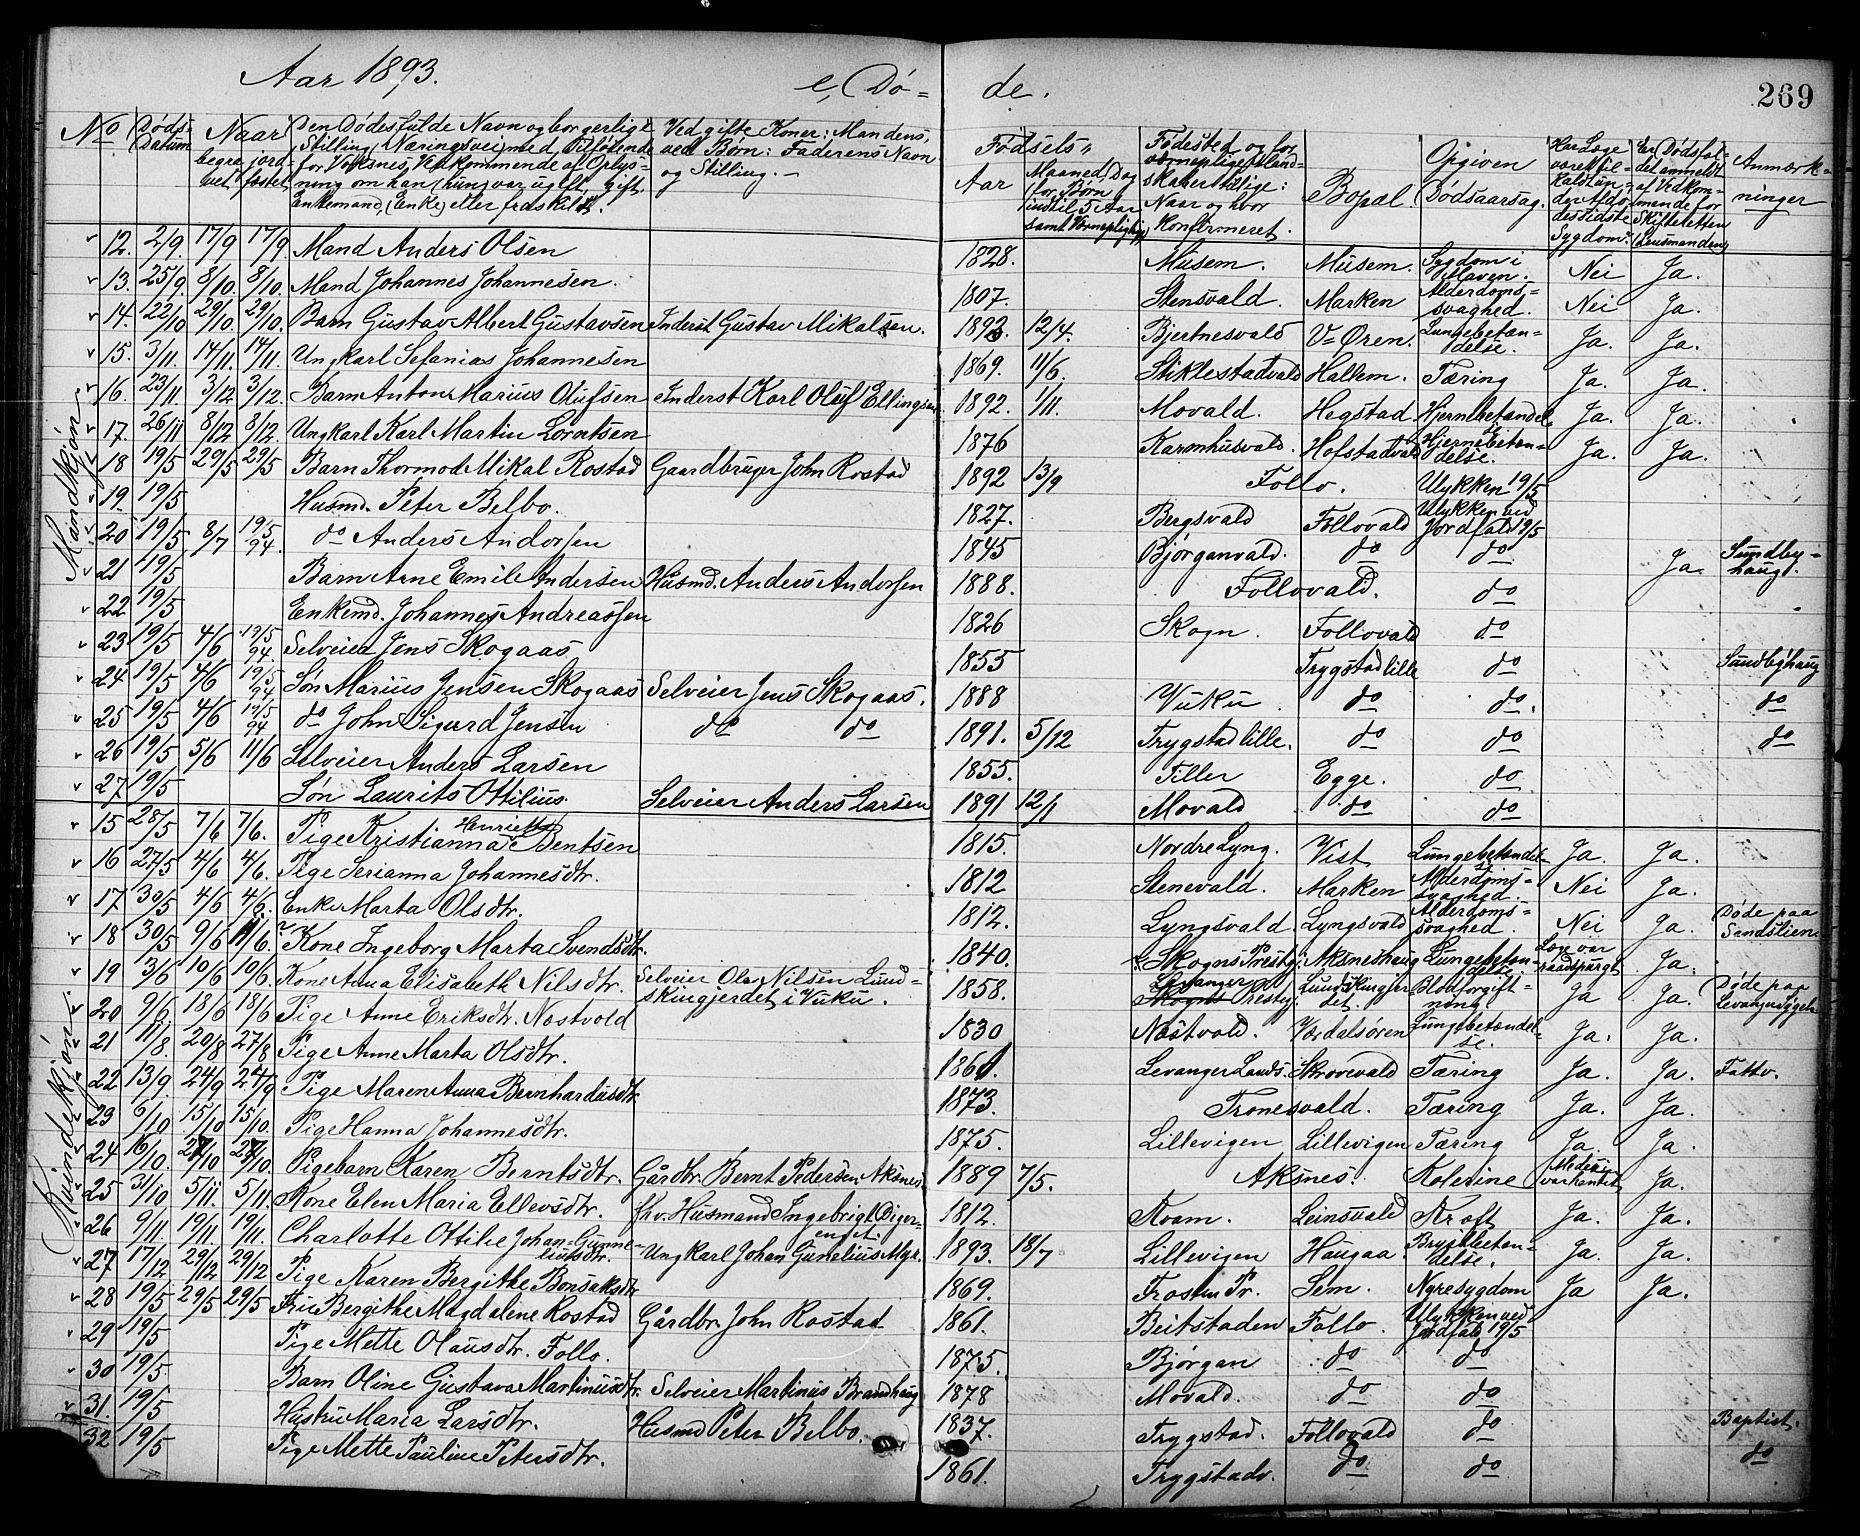 Aar 1893.
e, Dø=
de.
269
No
Døds-Datum
Naar
begravet
jordfæstet
Den Dødes fulde Navn og borgerlige Stilling (Næringsvei) med Tilføiende for Voksnes Vedkommende af Oplysning om han (hun) var ugift, gift, Enkemand, (Enke) eller fraskildt.
Ved gifte Koner: Mandens, ved Børn: Faderens Navn og Stilling.
Fødsels=
Aar
Maaned, Dag (for Børn indtil 5 Aar samt Værnepligtige)
Fødested og for værnepligtige Mandskaber tillige: Naar og hvor konfirmeret.
Bopæl.
Opgiven Dødsaarsag.
Har Læge været tilkaldt under Afdødes sidste Sygdom.
Er Dødsfaldet anmeldt af Vedkommende for Skifteretten (Lensmanden)
Anmærkninger
Mandkjøn
12. 2/9 17/9 17/9 Mand Anders Olsen 1828. Musem. Musem. Sygdom i Maven. Nei Ja.
13. 25/9 8/10. 8/10. Mand Johannes Johannesen. 1807. Stensvald. Marken Alderdoms=svaghed. Nei Ja.
14. 22/10 29/10. 29/10. Barn Gustav Albert Gustavsen Inderst Gustav Mikalsen. 1892. 12/4. Bjertnesvald V=Øren. Lungebetæn=delse. Ja. Ja.
15. 3/11. 14/11. 14/11. Ungkarl Sefanias Johannesen 1869. 11/6. Stiklestadvald Hallem. Tæring Ja. Ja.
16. 23/11 3/12 3/12. Barn Anton Marius Olufsen Inderst Karl Oluf Ellingsen 1892. 1/11. Movald. Hegstad Hjernebetændelse Ja. Ja.
17. 26/11 8/12 8/12. Ungkarl Karl Martin Lorntsen 1876 Karmhusvald. Hofstadvald Hjernebetæn=delse. Ja. Ja.
18 19/5 29/5 29/5 Barn Thormod Mikal Rostad Gaardbruger John Rostad 1892 13/9 Follo. Ulykken 19/5
19. 19/5 Husmd. Peter Belbo. 1827. Bergsvald Follovald Ulykken ved Jordfald 19/5
20 19/5 8/7 19/5 94. do Anders Andorsen 1845 Bjørganvald. do do Ja. Sundby=haug.
21 19/5 Barn Arne Emil Andersen Husmd. Anders Andorsen 1888. Follovald. do
22 19/5 Enkemd. Johannes Andreassen 1826 Skogn. Follovald do
23 19/5 4/6 19/5 94. Selveier Jens Skogaas 1855 Trygstad lille do Sundbyhaug
24 19/5 4/6 19/5 94 Søn Marius Jensen Skogaas Selveier Jens Skogaas. 1888 Vuku. do do. do
25 19/5 4/6 19/5 94 do John Sigurd Jensen do do 1891. 5/12 Trygstad lille. do do do
26 19/5 5/6 11/6 Selveier Anders Larsen 1855. Tiller Egge. do
27 19/5 Søn Laurits Ottilius. Selveier Anders Larsen 1891 12/1 Movald do do
Kvindekjøn
15 28/5 7/6 7/6. Pige Kristianna Henriette Bentsen 1815. Nordre Lyng. Vist Lungebetændel Ja. Ja.
16 27/5 4/6 4/6. Pige Serianna Johannesdtr. 1812 Stenevald. Marken Alderdoms=svaghed Nei Ja.
17 30/5 4/6 4/6. Enke Marta Olsdtr. 1812. Lyngsvald Lyngsvald Alderdoms=svaghed. Nei Ja. Døde paa Sandslien
18 30/5 9/6 11/6. Kone Ingeborg Marta Svendsdtr. 1840. Skogns Prestgj. Aksneshaug Lungebetæn=delse. Læge var raadspurgt Ja.
19 3/6 10/6 10/6. Kone Anna Elisabeth Nilsdtr. Selveier Ole Nilsen Lund=skingjerdet i Vuku. 1858. Levanger Prestgj. Lundskingjerdet. Blodforgift=ning Ja Ja. Døde paa Levanger Sygeh.
20 9/6 18/6 18/6 Pige Anne Eriksdtr. Nestvold 1830 Nestvold. Verdalsøren Lungebetændel=se. Ja. Ja.
21 11/8. 20/8 27/8 Pige Anne Marta Olsdtr. 1861. Levanger Lands. Skrovevald Tæring Ja. Ja. Fattv.
22 13/9. 24/9 24/9 Pige Maren Anna Bernhardusdtr. 1873. Tronesvald. Tæring Ja. Ja.
23 6/10 15/10 15/10. Pige Hanna Johannesdtr. 1875. Lillevigen Lillevigen Tæring Ja. Ja.
24 16/10. 27/10 27/10. Pigebarn Karen Berntsdtr. Gårdbr. Bernt Pedersen Aksnes 1889 7/5. Aksnes. Kolerine Medicin var hentet Ja.
25 31/10 5/11. 5/11. Kone Elen Maria Ellevsdtr. fhv. Husmand Ingebrigt Digerenget. 1812. Kvam. Leinsvald Kræft Ja. Ja.
26 9/11. 19/11. 19/11. Charlotte Ottilie Johan=Gunneliusdtr. Ungkarl Johan Gunelius Myr. 1893. 18/7 Lillevigen Haugaa Brystbetæn=delse. Ja. Ja.
27 17/12 29/12 29/12 Pige Karen Bergithe Bonsaksdtr 1869. Frosten Pr. Sem. Nyresygdom Ja Ja.
28 19/5 29/5 29/5 Fru Bergithe Magdalene Rostad Gårdbr. John Rostad 1861. Beitstaden Follo. Ulykken ved Jordfald 19/5
29 19/5. Pige Mette Olausdtr. Follo. 1875. Bjørgan do do
30 19/5. Barn Oline Gustava Martinusdtr. Selveier Martinus Brandhaug 1878 Movald. do do
31. 19/5 Hustru Maria Larsdtr. Husmd Peter Belbo. 1837. Trygstad. Follovald do Baptist.
32 19/5 Pige Mette Pauline Petersdtr. 1861. Trygstadv. do do do